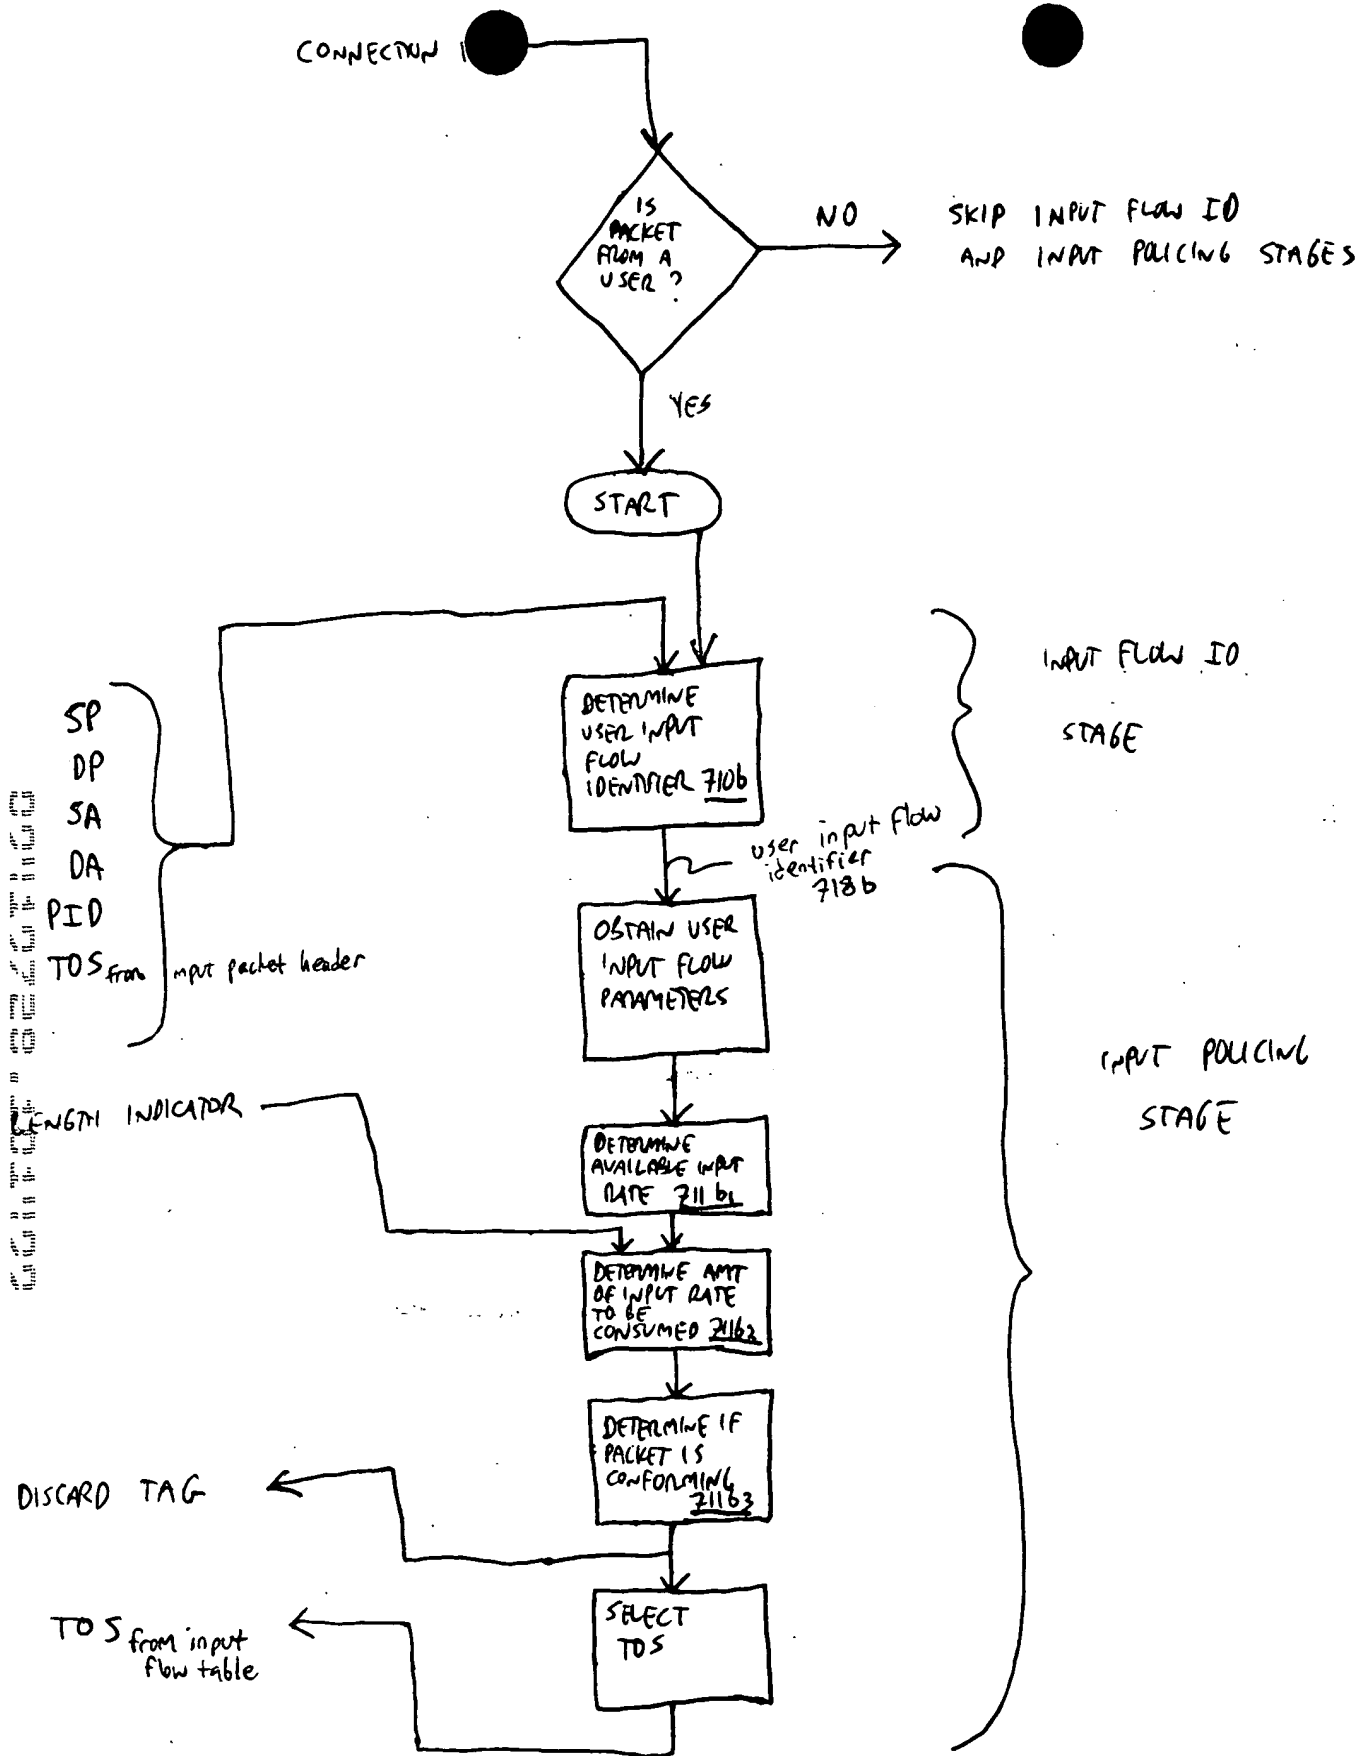 CONNECTION 1
IS
PACKET
FROM A
USER?
NO
SKIP INPUT FLOW ID
AND INPUT POLICING STAGES
YES
START
INPUT FLOW ID
STAGE
DETERMINE
USER INPUT
FLOW
IDENTIFIER 710b
SP
DP
SA
DA
PID
TOS from input packet header
user input flow
identifier
718b
OBTAIN USER
INPUT FLOW
PARAMETERS
INPUT POLICING
STAGE
LENGTH INDICATOR
DETERMINE
AVAILABLE INPUT
RATE 711b1
DETERMINE AMT
OF INPUT RATE
TO BE
CONSUMED 711b2
DETERMINE IF
PACKET IS
CONFORMING
711b3
DISCARD TAG
SELECT
TOS
TOS from input
flow table